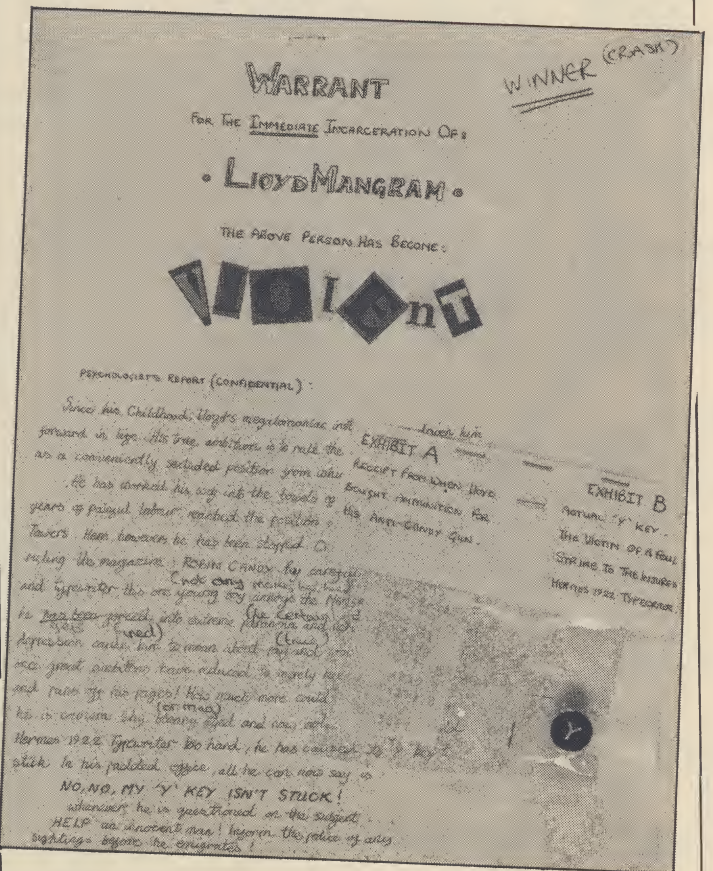 WINNER (CRASH)
WARRANT
FOR THE IMMEDIATE INCARCERATION OF:
• LLOYD MANGRAM •
THE ABOVE PERSON HAS BECOME:
VIOLEnT
PSYCHOLOGIST'S REPORT (CONFIDENTIAL):
Since his Childhood, Lloyd's megalomaniac inst
forward in life. His true ambition is to rule the
as a conveniently secluded position from
He has worked his way into the bowels of
years of painful labour reached the position
Towers. Here, however, he has been stopped
ruling the magazine: ROBIN CANDY has
and typewriter this one young boy
he has been forced into extreme paranoia and
(Tired)
depression cause him to moan about
once great ambitions have reduced to merely
and pass off his pages! How much more could
(or man)
he is and now
Hermes 1922 Typewriter too hard, he has caused its 'y' key to
stick. In his padded office, all he can now say is
NO, NO, MY 'Y' KEY ISN'T STUCK!
whenever he is questioned on the subject.
HELP an innocent man! Inform the police of any
sightings before he emigrates!
EXHIBIT A
RECEIPT FROM WHEN LLOYD
BOUGHT AMMUNITION FOR
HIS ANTI-CANDY GUN.
EXHIBIT B
ACTUAL 'Y' KEY.
THE VICTIM OF A FOUL
STRIKE TO THE INJURED
HERMES 1922 TYPEWRITER.
Y